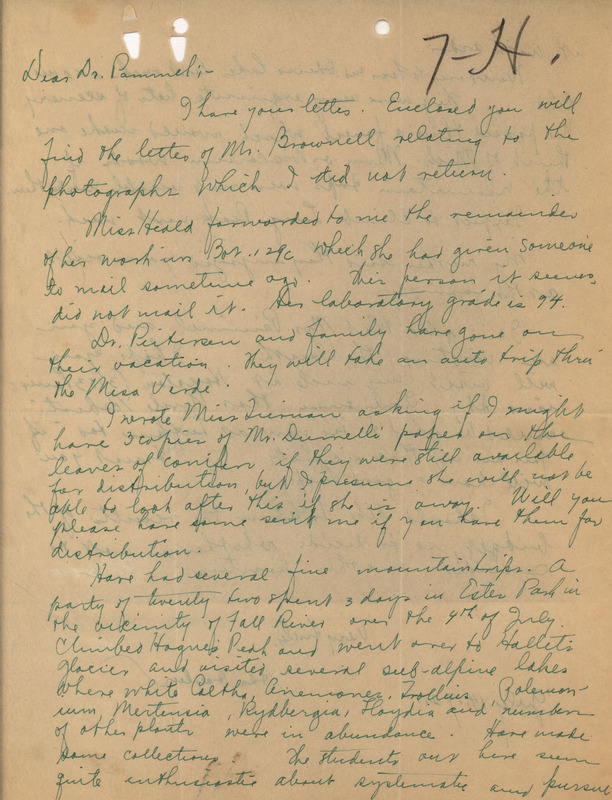 7-H.
Dear Dr. Pammel;-
I have your letter. Enclosed you will
find the letter of Mr. Brownell relating to the
photographs which I did not return.
Miss Heald forwarded to me the remainder
of her work in Bot. 129c which she had given someone
to mail sometime ago. This person it seems,
did not mail it. Her laboratory grade is 94.
Dr. and family have gone on
their vacation. They will take an auto trip thru
the Mesa Verde.
I wrote Miss asking if I might
have 3 copies of Mr. paper on the
leaves of conifers if they were still available
for distribution, but I presume she will not be
able to look after this if she is away. Will you
please have some sent me if you have them for
distribution.
Have had several fine mountain trips. A
party of twenty two spent 3 days in Estes Park in
the vicinity of Fall River over the 4th of July.
Climbed Hagues Peak and went over to Hallets
Glacier and visited several sub-alpine lakes
where white Caltha, Anemones, Trollius, Polemon-
ium, Mertensia, Rydbergia, Lloydia and numbers
of other plants were in abundance. Have made
some collections. The students out here seem
quite enthusiastic about systematic and pursue